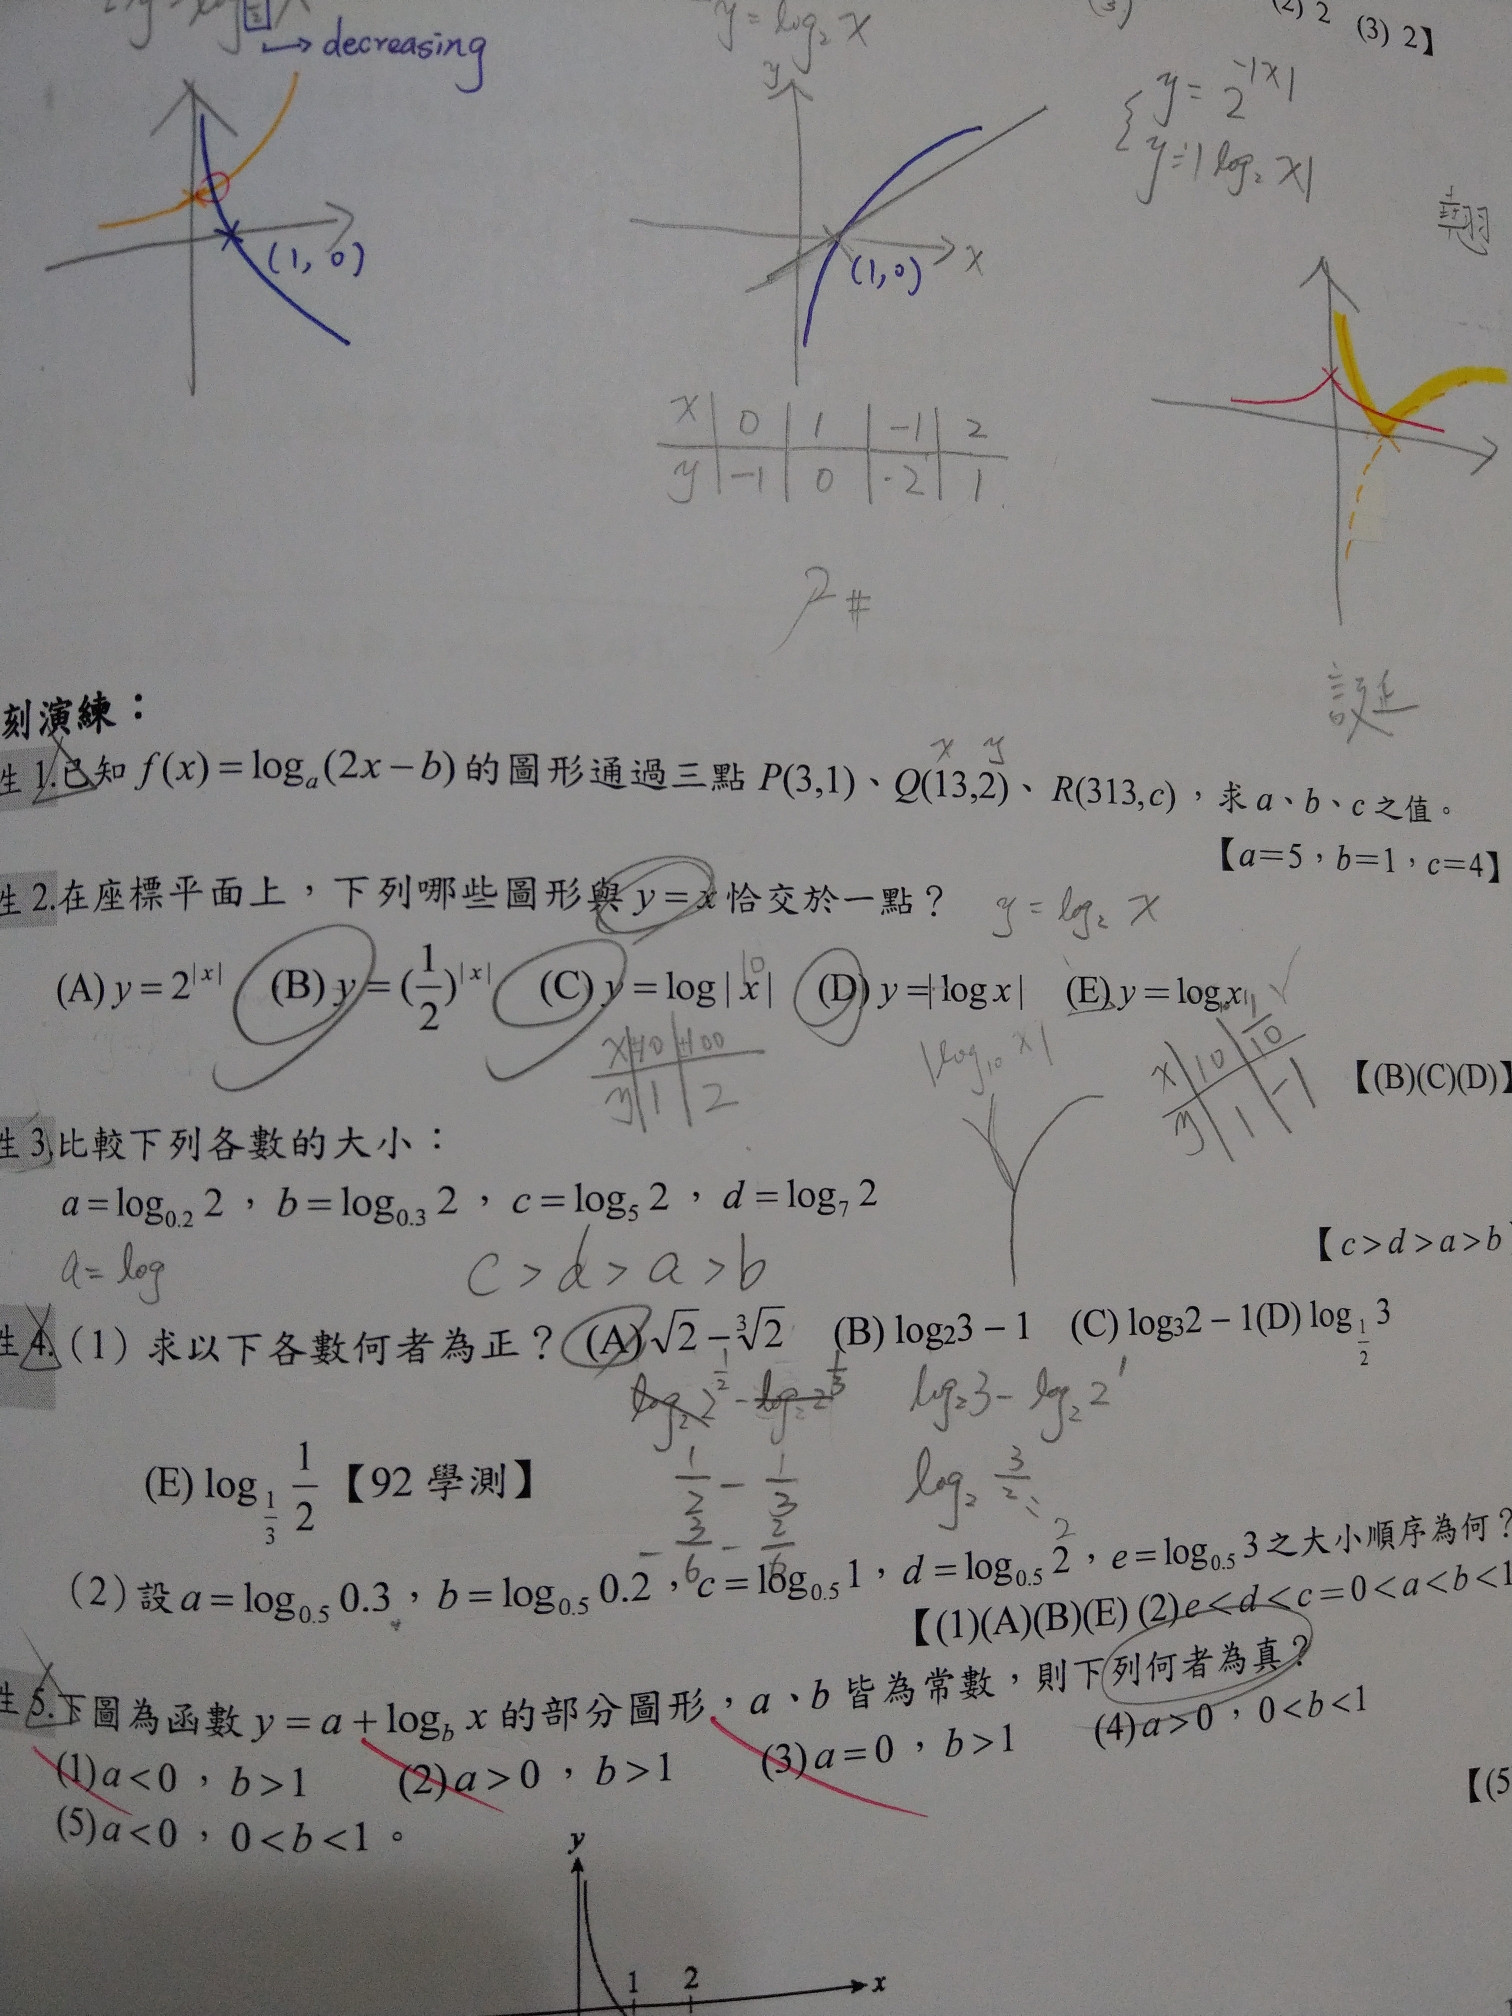 decreasing
(1, 0)
y = log₂ x
y
(1,0)
x
(2) 2 (3) 2】
y = 2^{-|x|}
y = |log₂ x|
翹
x | 0 | 1 | -1 | 2
y | -1 | 0 | -2 | 1
2 #
刻演練：
誕
x y
生 1.已知 f(x)=logₐ(2x−b)的圖形通過三點 P(3,1)、Q(13,2)、R(313,c)，求 a、b、c 之值。
【a=5，b=1，c=4】
生 2.在座標平面上，下列哪些圖形與 y=x 恰交於一點？
y = log₂ x
(A) y=2^{|x|} (B) y=(1/2)^{|x|} (C) y=log|x| (D) y=|log x| (E) y=log x
10
x | 10 | 100
y | 1 | 2
|log₁₀ x|
x | 10 | 1/10
y | 1 | -1
【(B)(C)(D)】
生 3.比較下列各數的大小：
a=log_{0.2} 2，b=log_{0.3} 2，c=log₅ 2，d=log₇ 2
【c>d>a>b
a= log
c > d > a > b
生 4.(1) 求以下各數何者為正？(A) √2−∛2 (B) log₂3−1 (C) log₃2−1(D) log_{1/2} 3
log₂ 2^{1/2} - log₂ 2^{1/3}
log₂3 - log₂2¹
(E) log_{1/3} 1/2【92 學測】
1/2 - 1/3
log₂ 3/2
3/6 - 2/6
2
(2)設 a=log_{0.5} 0.3，b=log_{0.5} 0.2，c=log_{0.5} 1，d=log_{0.5} 2，e=log_{0.5} 3 之大小順序為何？
【(1)(A)(B)(E) (2) e<d<c=0<a<b<1
生 5.下圖為函數 y=a+log_b x 的部分圖形，a、b 皆為常數，則下列何者為真？
(1)a<0，b>1 (2)a>0，b>1 (3)a=0，b>1 (4)a>0，0<b<1
【(5
(5)a<0，0<b<1。
y
1 2 x